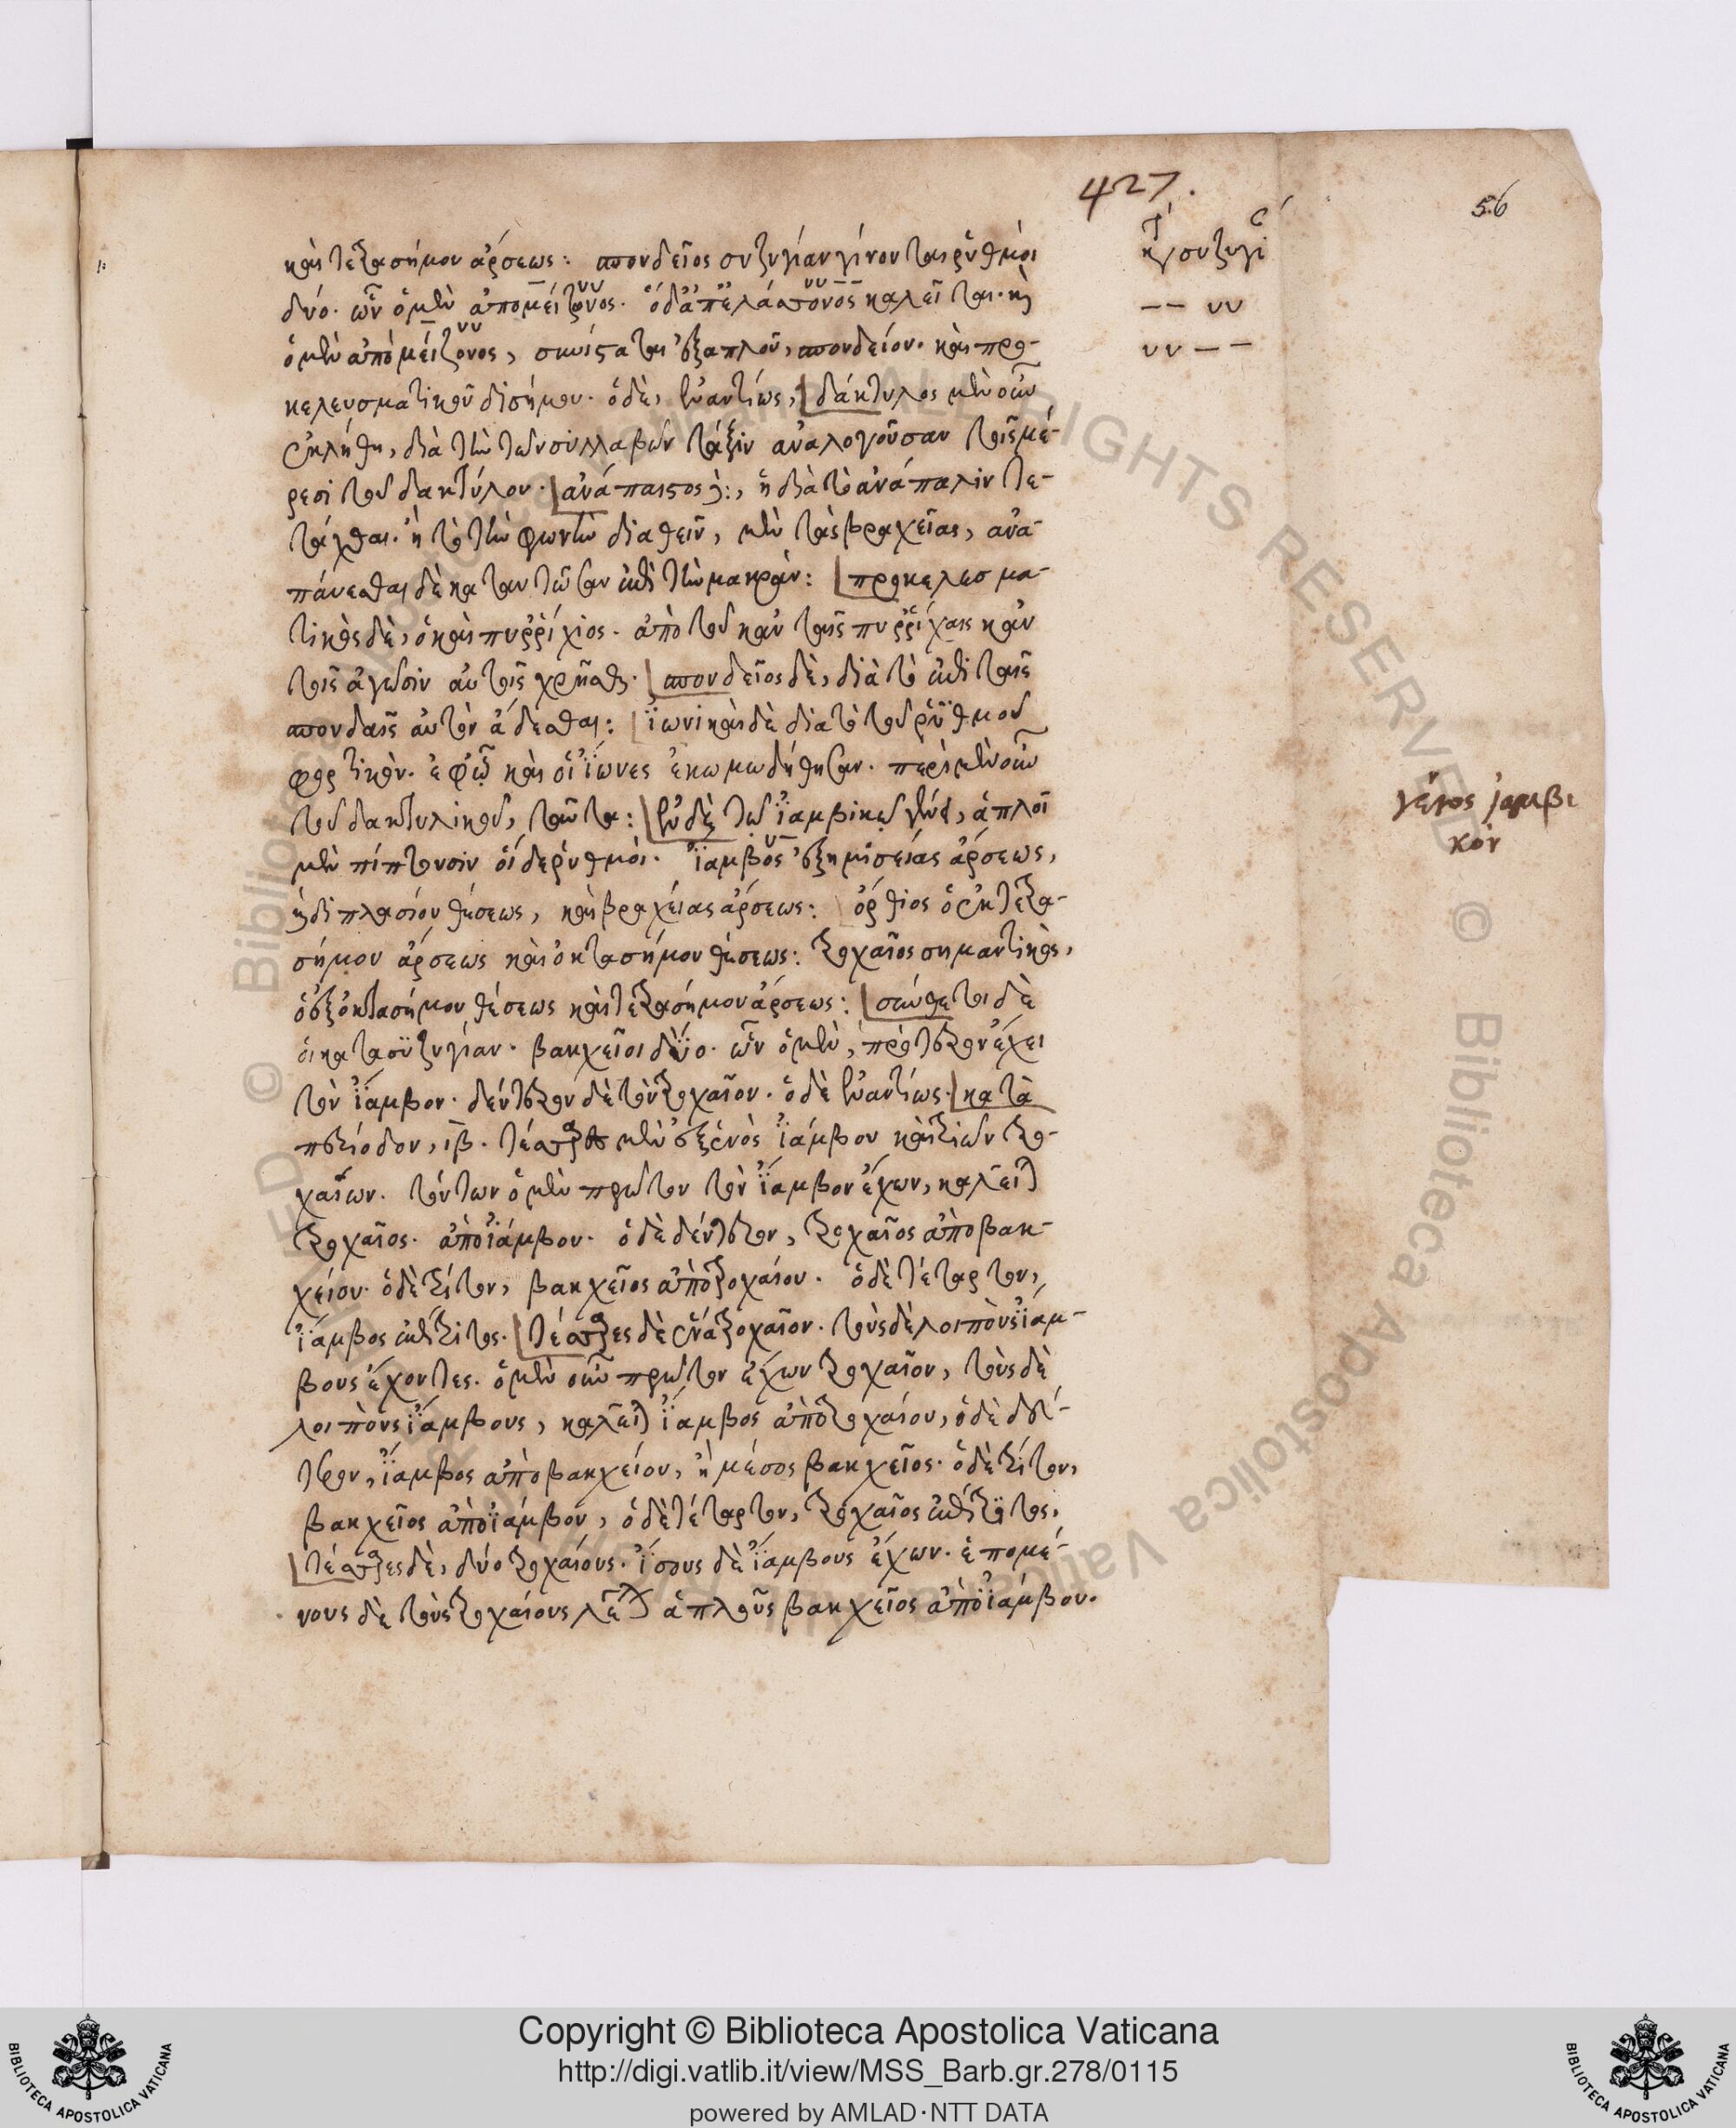 427.
56
καὶ τετρασήμου ἄρσεως: σπονδεῖος συζυγίαν γίνονται ῥυθμοὶ
δύο. ὧν ὁ μὲν ἀπομείζονος. ὁ δ' ἀπ' ἐλάσσονος καλεῖται. κὶ
ὁ μὲν ἀπὸ μείζονος, συνίσταται ἐξ ἁπλοῦ, σπονδείου. καὶ προ-
κελευσματικοῦ δισήμου. ὁ δὲ, ἐναντίως, δάκτυλος μὲν οὖν
ἐκλήθη, διὰ τὴν τῶν συλλαβῶν τάξιν ἀναλογοῦσαν τοῖς μέ-
ρεσι τοῦ δακτύλου. ἀνάπαιστος δὲ, ἢ διὰ τὸ ἀνάπαλιν τε-
τάχθαι. ἢ τὸ τὴν φωνὴν διαθεῖν, μὲν τὰς βραχείας, ανα-
πάυεσθαι δὲ καταντῶσαν ἐπὶ τὴν μακρὰν: προκελεσμα-
τικὸς δὲ, ὁ καὶ πυῤῥίχιος. ἀπὸ τοῦ κἀν ταῖς πυῤῥίχαις κἀν
τοῖς ἀγῶσιν αὐτοῖς χρῆσθαι. σπονδεῖος δὲ, διὰ τὸ ἐπὶ ταῖς
σπονδαῖς αὐτὸν ἄδεσθαι: ἰωνικὸς δὲ διὰ τὸ τοῦ ῥυθμοῦ
φορτικὸν. ἐφ' ᾧ καὶ οἱ ἴωνες ἐκωμωδήθησαν. περὶ μὲν οὖν
τοῦ δακτυλικοῦ, ταῦτα: ἐν δὲ τῷ ἰαμβικῷ γένει, ἁπλοῖ
μὲν πίπτουσιν οἱ δε ῥυθμοὶ. ἴαμβος ἐξ ἡμισείας ἄρσεως,
ἠ διπλασίου θέσεως, καὶ βραχείας ἄρσεως: ὄρθιος ὁ ἐκ τετρα-
σήμου ἄρσεως καὶ ὀκτασήμου θέσεως: τροχαῖος σημαντικὸς,
ὁ ἐξ ὀκτασήμου θέσεως καὶ τετρασήμου ἄρσεως: σύνθετοι δὲ
οἱ κατὰ συζυγίαν. βακχεῖοι δύο. ὧν ὁ μὲν, πρότερον ἔχει
τὸν ἴαμβον. δεύτερον δὲ τὸν τροχαῖον. ὁ δὲ ἐναντίως. κατὰ
περίοδον, ιβ. τέσσαρες μὲν ἐξ ἑνὸς ἰάμβου καὶ τριῶν τρο-
χαίων. τούτων ὁ μὲν πρῶτον τὸν ἴαμβον ἔχων, καλεῖται
τροχαῖος. ἀπὸ ἰάμβου. ὁ δὲ δεύτερον, τροχαῖος ἀπὸ βακ-
χείου. ὁ δὲ τρίτον, βακχεῖος ἀπὸ τροχαίου. ὁ δὲ τέταρτον,
ἴαμβος ἐπίτριτος. τέσσαρες δὲ ἕνα τροχαῖον. τοὺς δὲ λοιποὺς ἰάμ-
βους ἔχοντες. ὁ μὲν οὖν πρῶτον ἔχων τροχαῖον, τοὺς δὲ
λοιποὺς ἰάμβους, καλεῖται ἴαμβος ἀπὸ τροχαίου, ὁ δὲ δεύ-
τερον, ἴαμβος ἀπὸ βακχείου, ἢ μέσος βακχεῖος. ὁ δὲ τρίτον,
βακχεῖος ἀπὸ ἰάμβου, ὁ δὲ τέταρτον, τροχαῖος ἐπίτριτος.
τέσσαρες δὲ, δύο τροχαίους. ἴσους δὲ ἰάμβους ἔχων. ἑπομέ-
νους δὲ τοὺς τροχαίους ἁπλοῦς βακχεῖος ἀπὸ ἰάμβου.
-- υυ
υυ --
γένος ἰαμβι
κόν